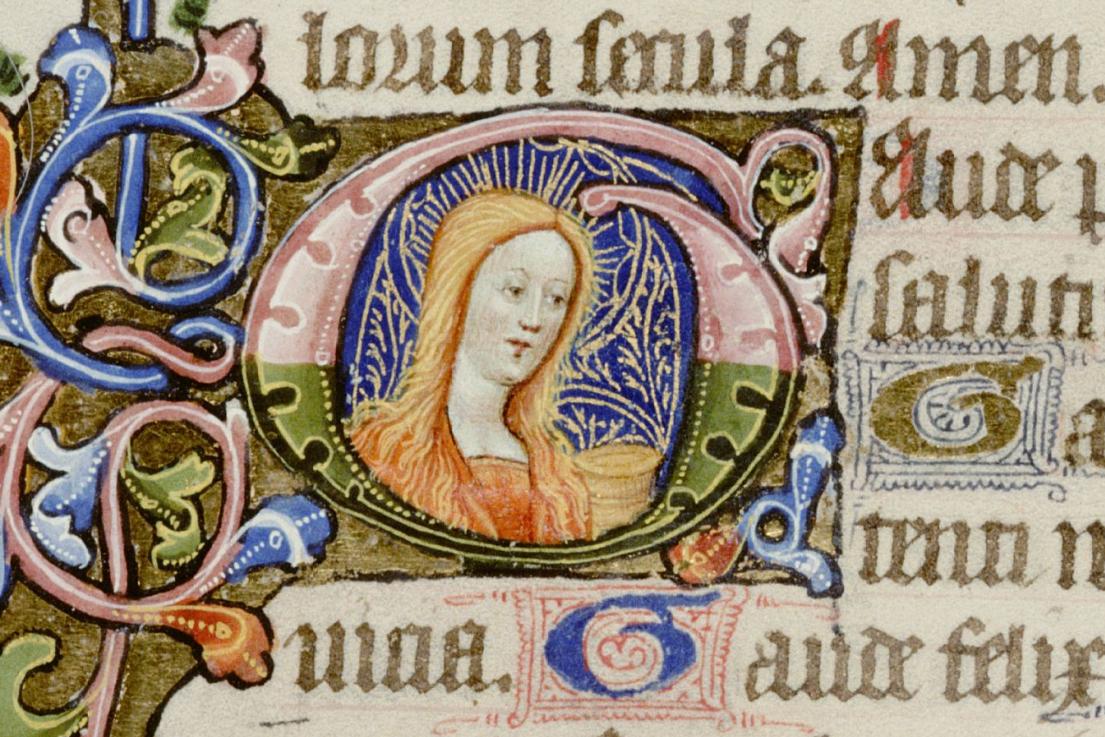 lorum secula. Amen.
GAude p
saluti
Ga
tenti n
uina. Gaude felix